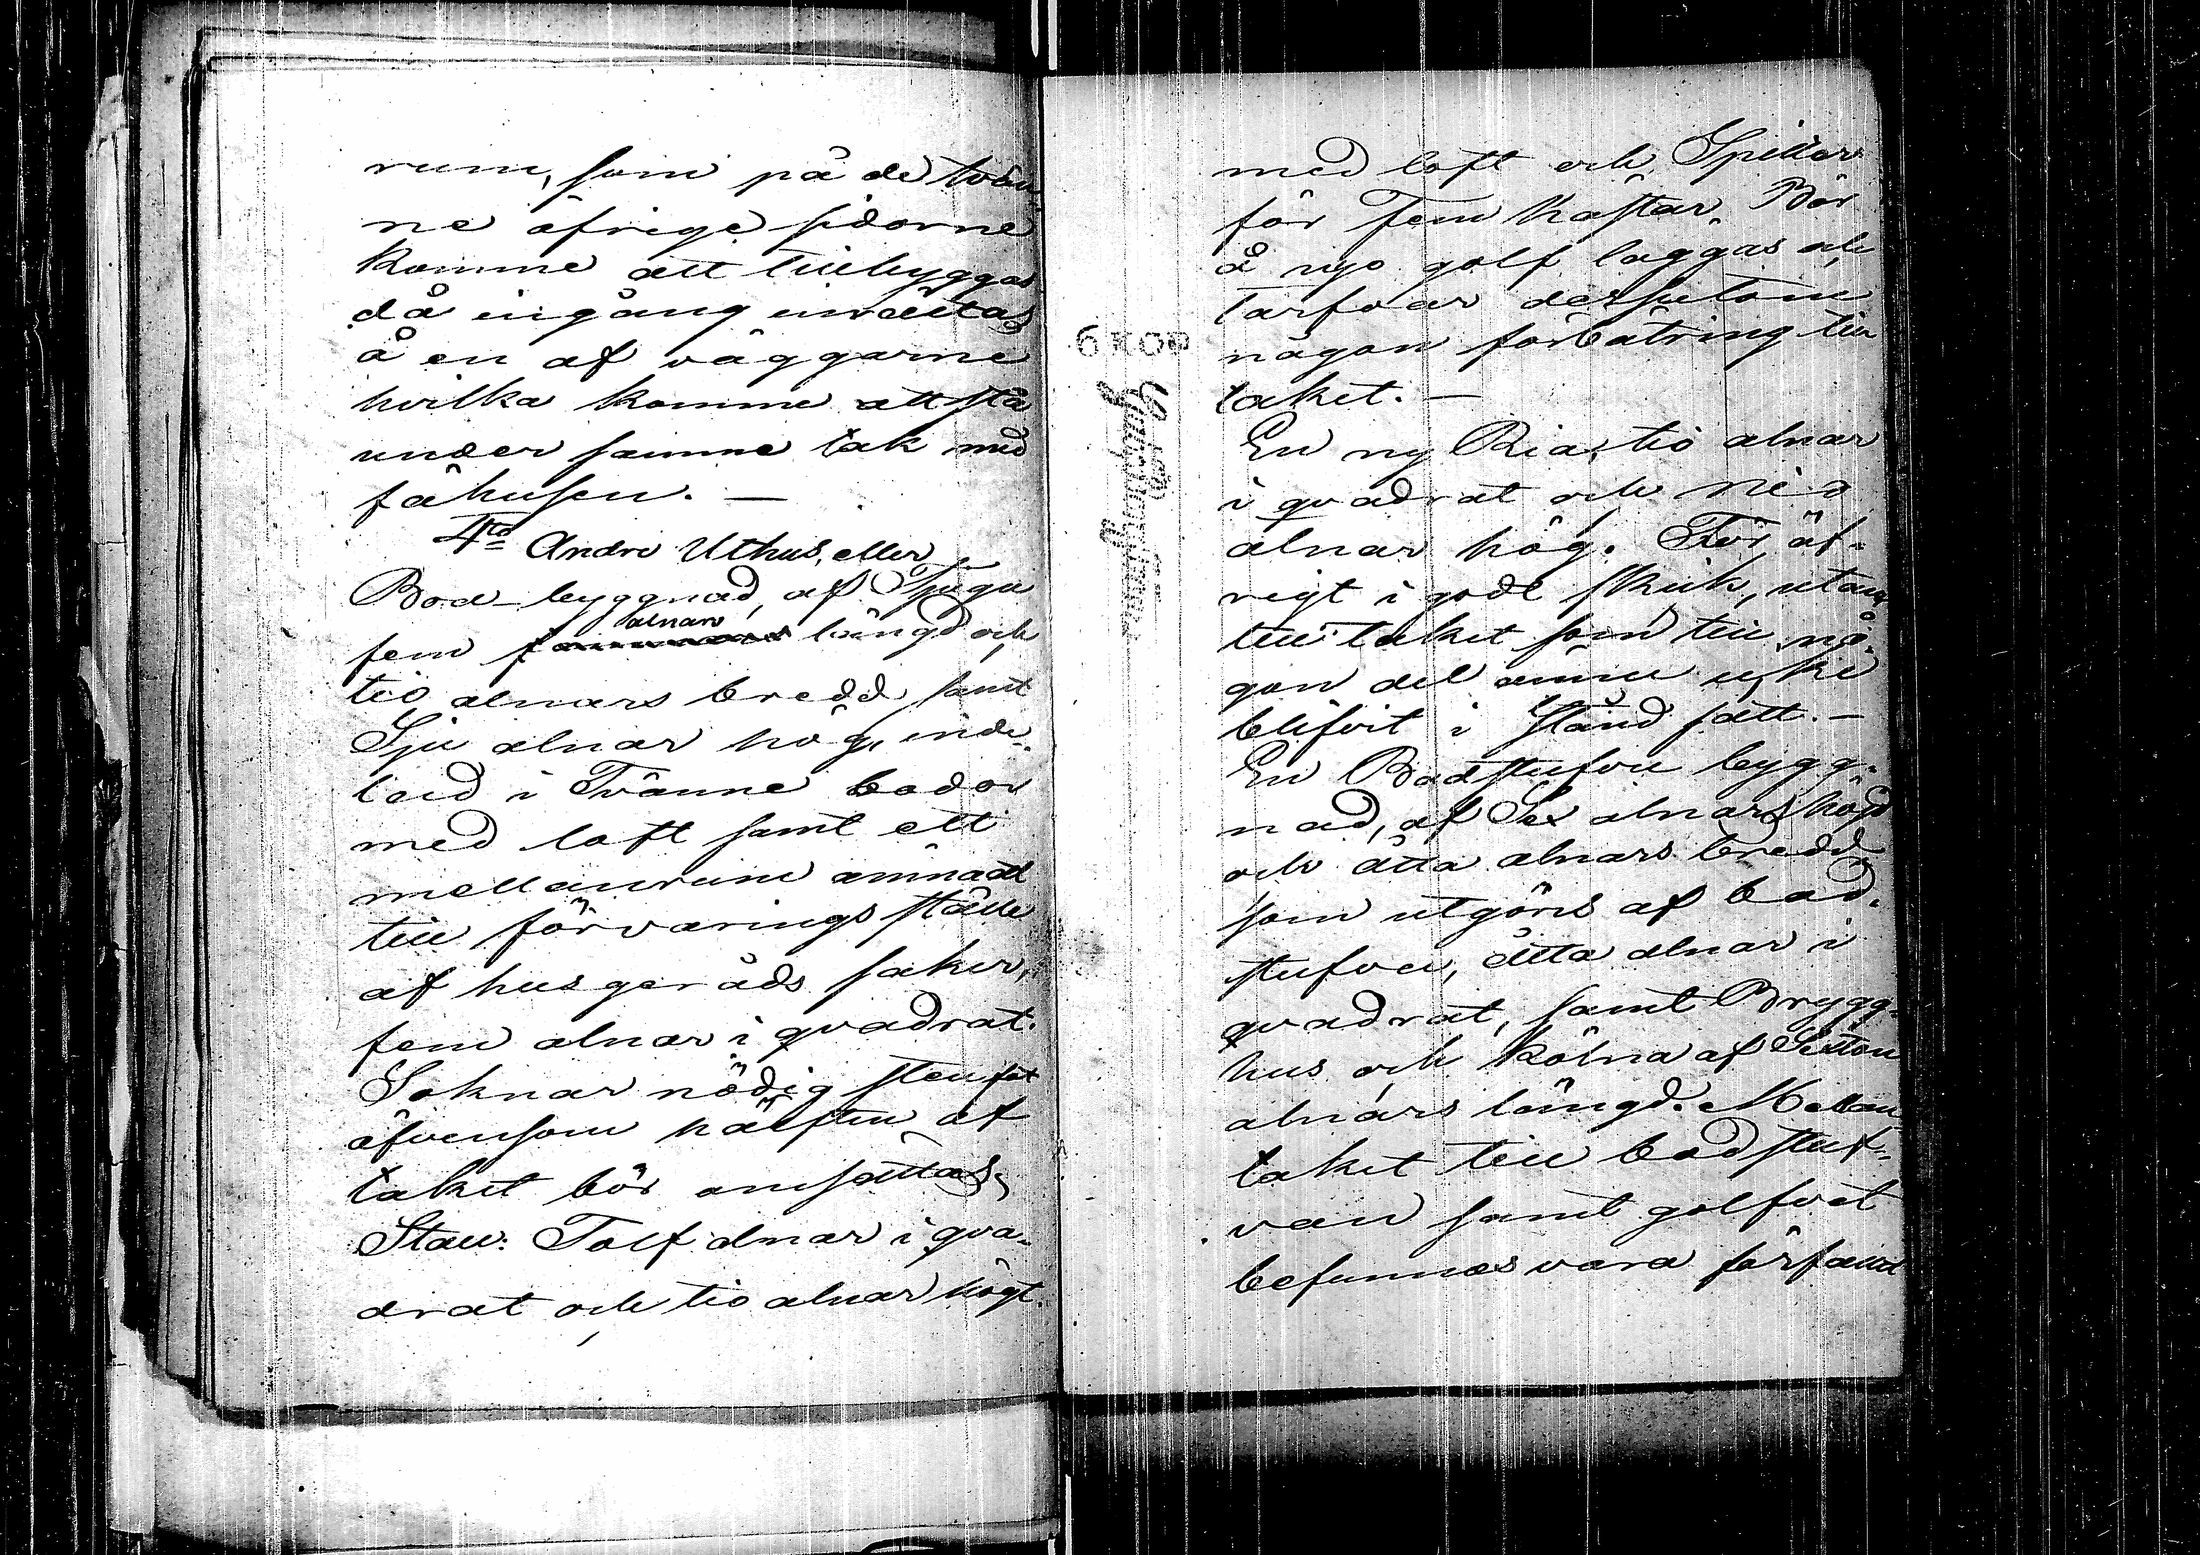 rum, som på de tvän
ne öfrige sidorne
komme att tillbyggas
då ingång inrättas
å en af väggarne
hvilka komme att stå
under samme tak med
fähusen. —
4to Andre Uthus, eller
Bod-byggnad, af Tjugu
fem alnars längd och
tio alnars bredd samt
Sju alnar hög, inde-
laid i Tvänne bodor
med loft samt ett
mellanrum ämnadt
till förvarings ställe
af husgeråds saker,
fem alnar i qvadrat.
Saknar nödig stenfot
äfvensom hälften af
taket bör omsättas,
Stall: Tolf alnar i qva-
drat och tio alnar högt.
med loft och Spiltor
för Fem hästar. Bör
å nyo golf läggas och
tarfvar dessutom
någon förbättring till
taket. —
En ny Ria, tio alnar
i qvadrat och nio
alnar hög. För öf-
rigt i godt skick, utom
till taket som till nå-
gon del ännu icke
blifvit i stånd satt. —
En Badstufvu bygg-
nad, af Sex alnars höjd
och åtta alnars bredd
som utgöres af bad-
stufvu, åtta alnar i
qvadrat, samt Brygg-
hus och Kölna af Sexton
alnars längd. Mellan
taket till badstuf-
van samt golfvet
befunnos vara förfallit
6 KOP